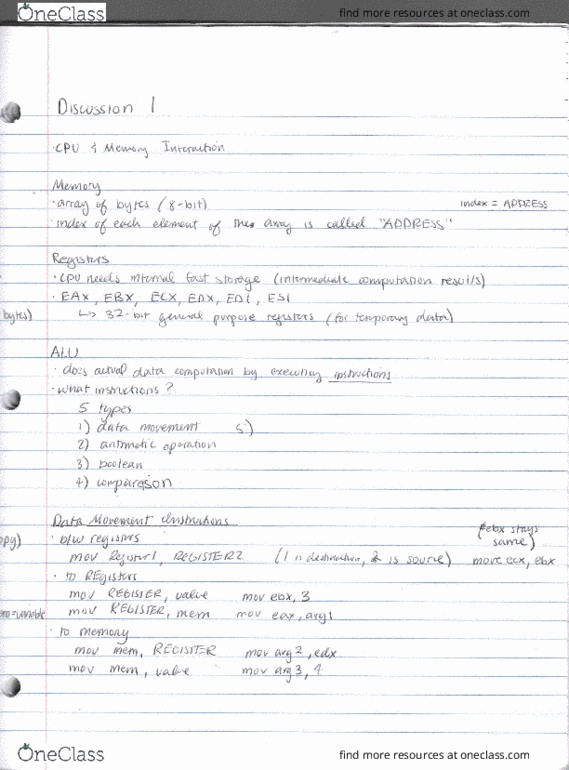 OneClass find more resources at oneclass.com
Discussion 1
·CPU & Memory Interaction
Memory
·array of bytes (8-bit) index = ADDRESS
·index of each element of this array is called "ADDRESS"
Registers
·CPU needs internal fast storage (intermediate computation results)
·EAX, EBX, ECX, EDX, EDI, ESI
bytes) ↳ 32-bit general purpose registers (for temporary data)
ALU
·does actual data computation by executing instructions
·what instructions?
5 types
1) data movement 5)
2) arithmetic operation
3) boolean
4) comparison
Data Movement Instructions (ebx stays
opy) ·b/w registers same)
mov Register1, REGISTER2 (1 is destination, 2 is source) move ecx, ebx
·to REgisters
mov REGISTER, value mov ebx, 3
em=variable mov REGISTER, mem mov eax, arg1
·to memory
mov mem, REGISTER mov arg2, edx
mov mem, value mov arg3, 4
OneClass find more resources at oneclass.com